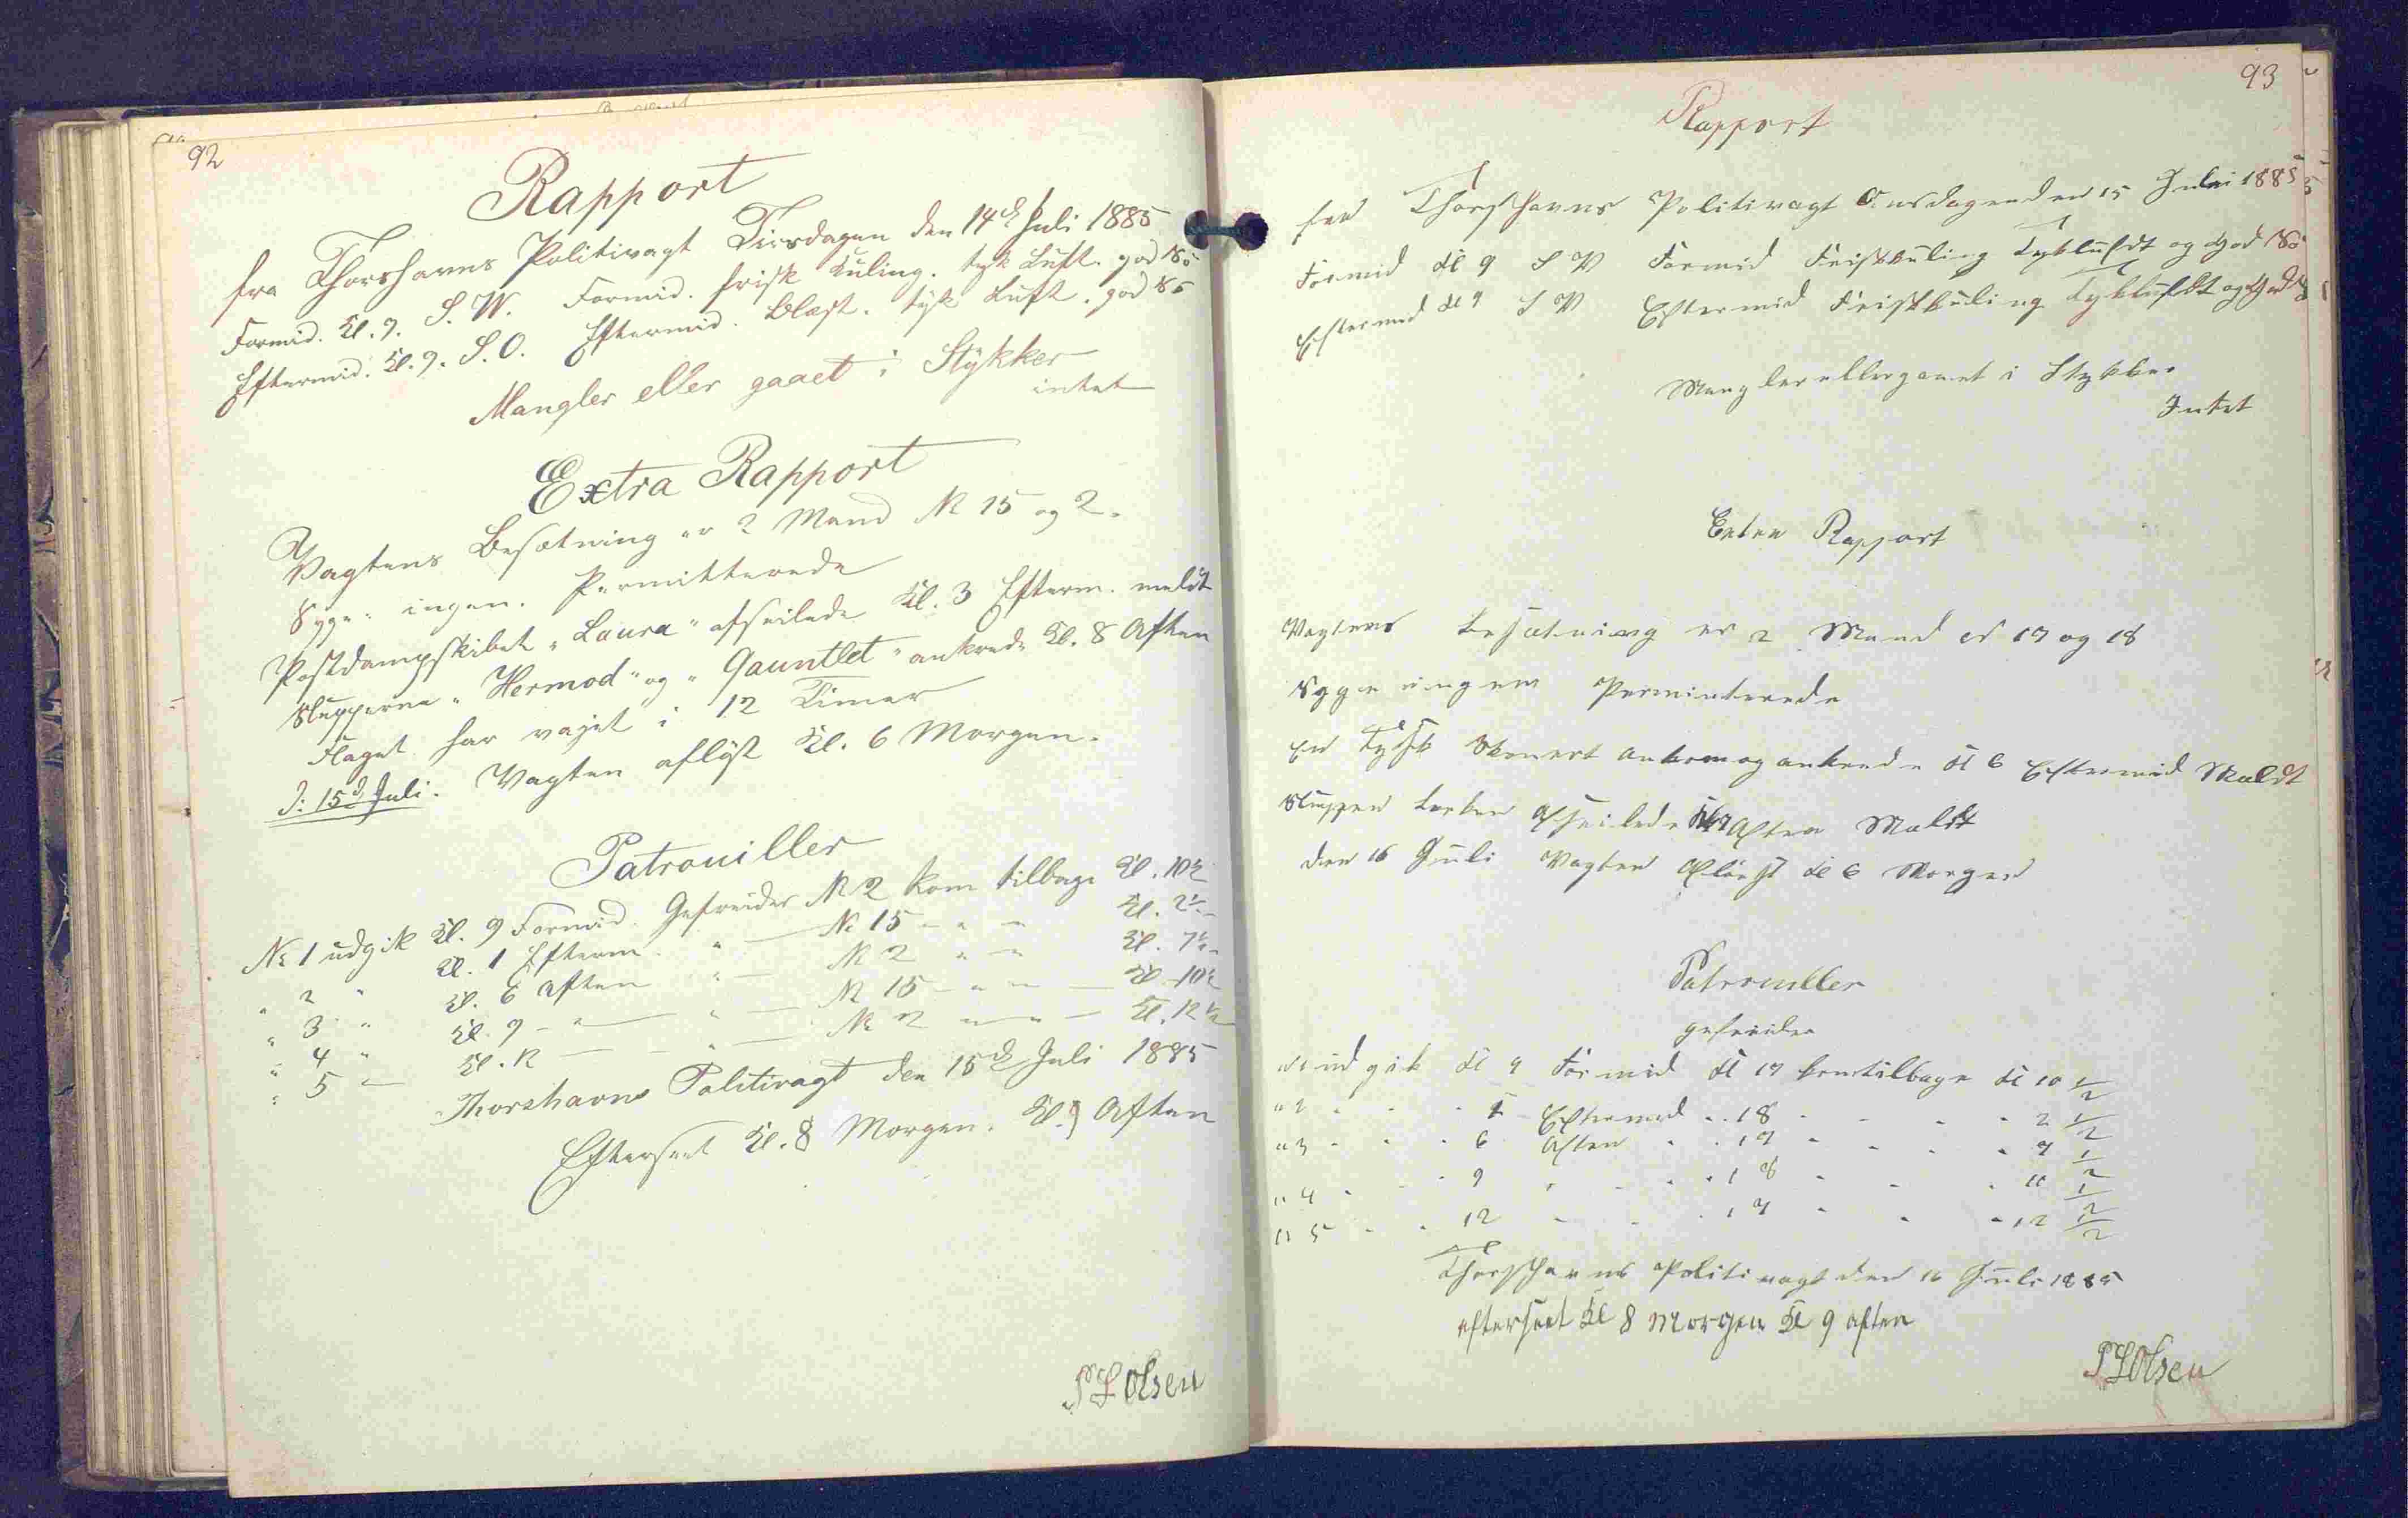 92
Rapport
fra Thorshavns Politivagt Tirsdagen den 14d Juli 1885
Formid. Kl. 9. S. W. Formid. frisk Kuling. tyk Luft. god Sö
Eftermid. Kl. 9. S. O. Eftermid. Blæst. tyk Luft. god Sö
Mangler eller gaaet i Stykker
intet
Extra Rapport
Vagtens Besætning er 2 Mand № 15 og 2.
Syge ingen. Permitterede
Postdampskibet „Laura“ afseilede Kl. 3 Efterm. meldt
Slupperne „Hermod“ og „Gauntlet“ ankrede Kl. 8 Aften
Flaget har vajet i 12 Timer
D: 15d Juli. Vagten aflöst Kl. 6 Morgen.
Patrouiller
№ 1 udgik Kl. 9 Formid. Gefreider № 2 kom tilbage Kl. 10½
" 2 " Kl. 1 Efterm. " — № 15 - " - Kl. 2½
" 3 " Kl. 6 Aften " — № 2 " - Kl. 7½
" 4 " Kl. 9 - " — " — № 15 - " - — Kl. 10½
" 5 — Kl. 12 — " — № 2 - " - Kl. 12½
Thorshavns Politivagt den 15d Juli 1885
Efterseet Kl. 8 Morgen. Kl. 9 Aften
Olsen
93
Rapport
fra Thorshavns Politivagt Onsdagen den 15 Juli 1885
Formid Kl 9 S V Formid Friskkuling Tykluft og God Sö
Eftermid Kl 9 S V Eftermid Friskkuling Tykluft og God Sö
Mangler eller gaaet i Stykker
Intet
Extra Rapport
Vagtens Besætning er 2 Mand № 17 og 18
Syge ingen Perminterede
En Tydsk Skonert ankom og ankrede Kl 6 Eftermid Meldt
Sluppen Afseilede Aften Meldt
den 16 Juli Vagten Aflöst Kl 6 Morgen
Patrouiller
gefreider
№ 1 udgik Kl 9 Formid № 17 kom tilbage Kl 10 ½
" 2 - - - 1 Eftermid - 18 - - - 2 ½
" 3 - - - 6 Aften - - 17 - - - 7 ½
" 4 - - - 9 - - - 18 - - - 10 ½
" 5 - - - 12 - - - 17 - - - 12 ½
Thorshavns Politivagt den 16 Juli 1885
efterseet Kl 8 Morgen Kl 9 aften
Olsen